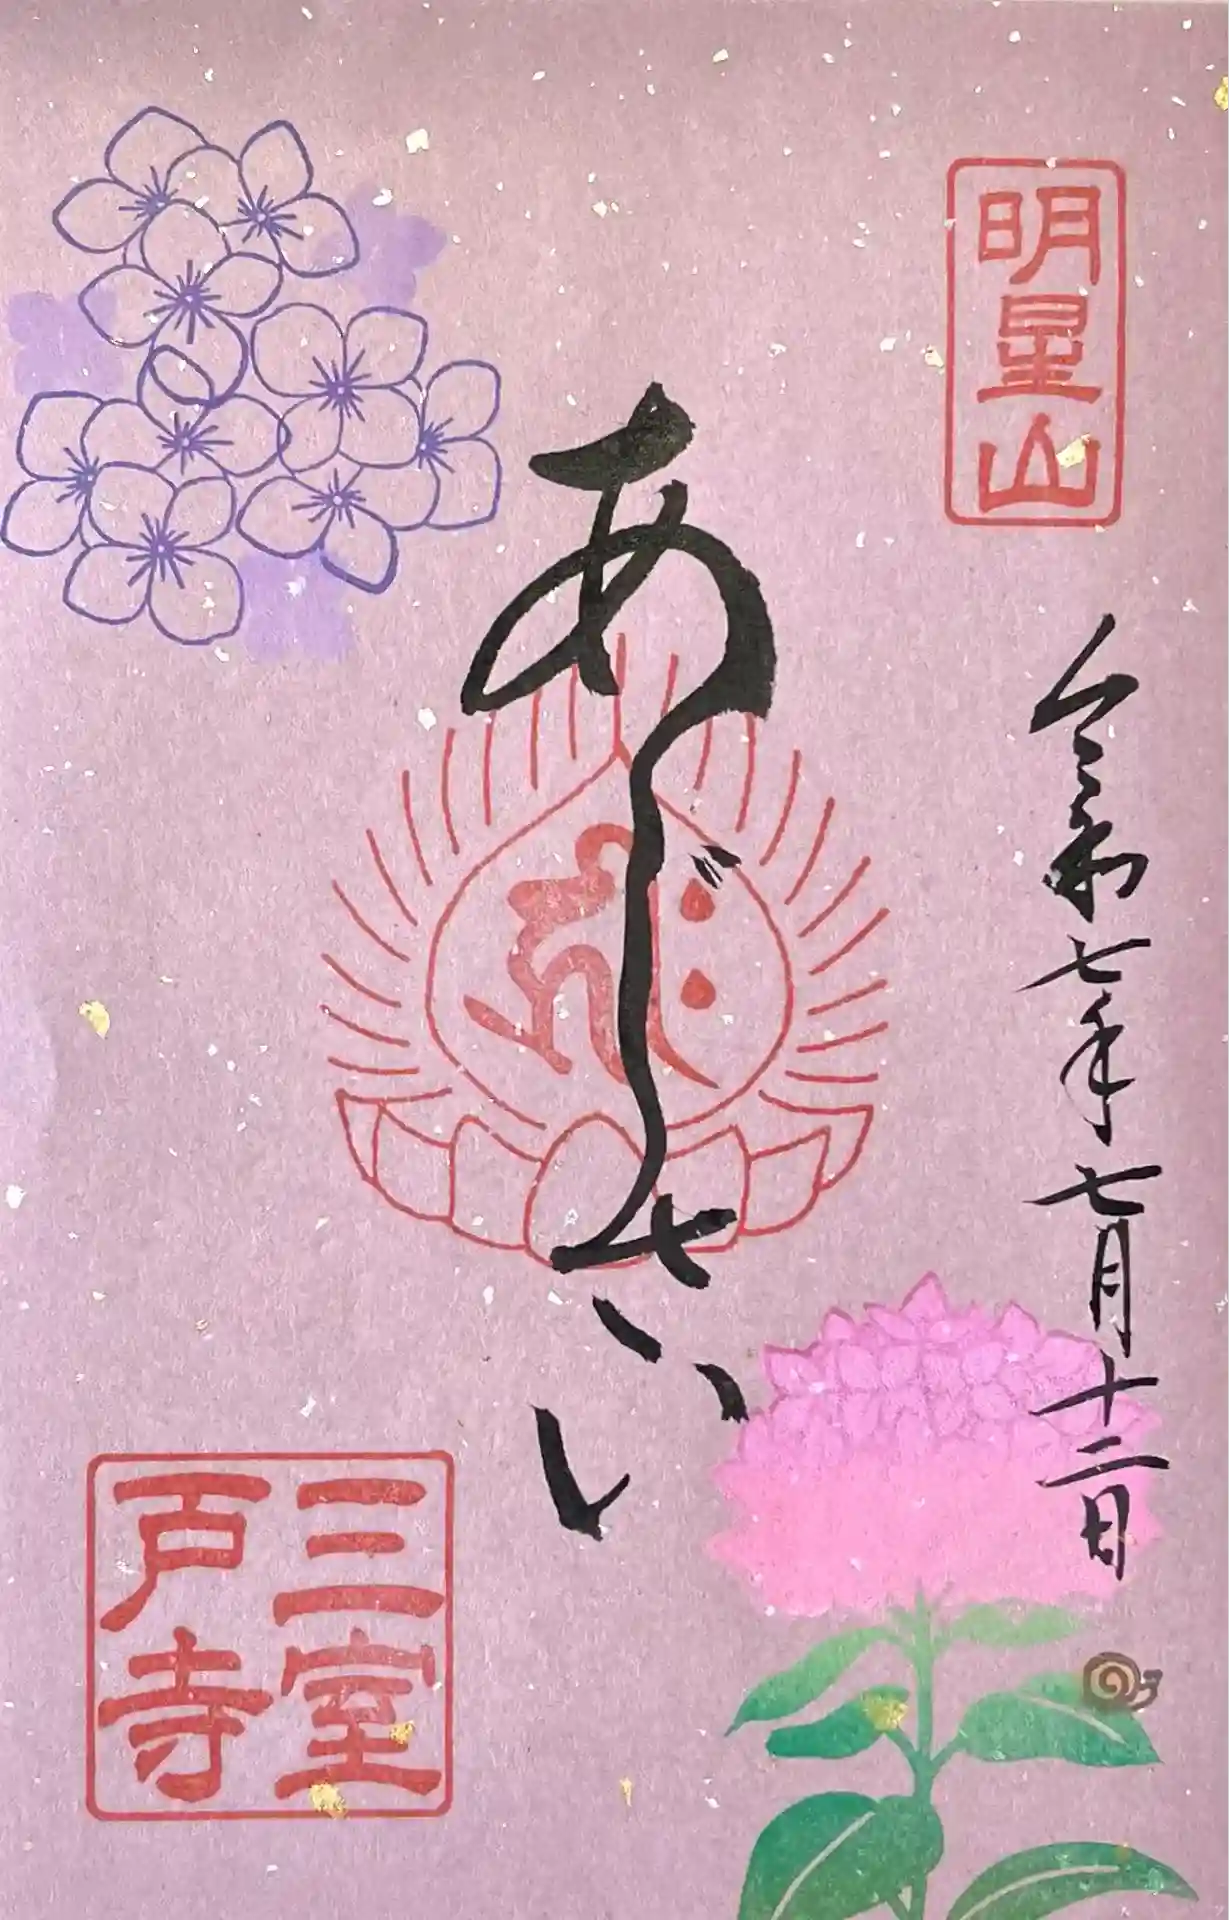 明星山
令和七年七月十二日
あじさい
三室
戸寺